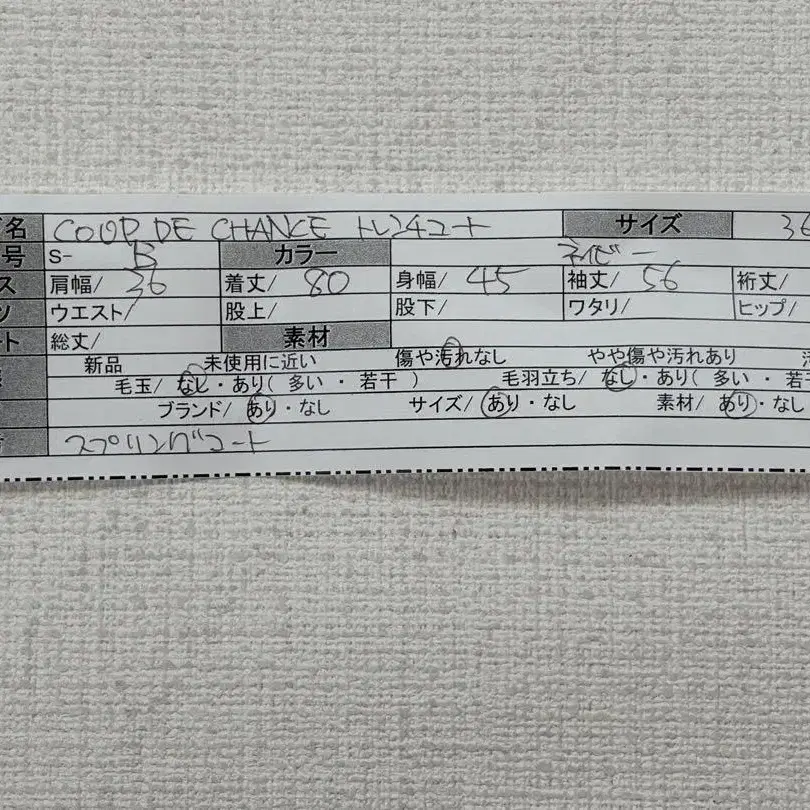 名 COUP DE CHANCE トレンチコート サイズ 36
号 S- B カラー ネイビー
ス 肩幅/ 36 着丈/ 80 身幅/ 45 袖丈/ 56 裄丈/
ウエスト/ 股上/ 股下/ ワタリ/ ヒップ/
ート 総丈/ 素材
新品 未使用に近い 傷や汚れなし やや傷や汚れあり
毛玉/ なし・あり( 多い ・ 若干 ) 毛羽立ち/ なし・あり( 多い ・ 若
ブランド/ あり・なし サイズ/ あり・なし 素材/ あり・なし
スプリングコート